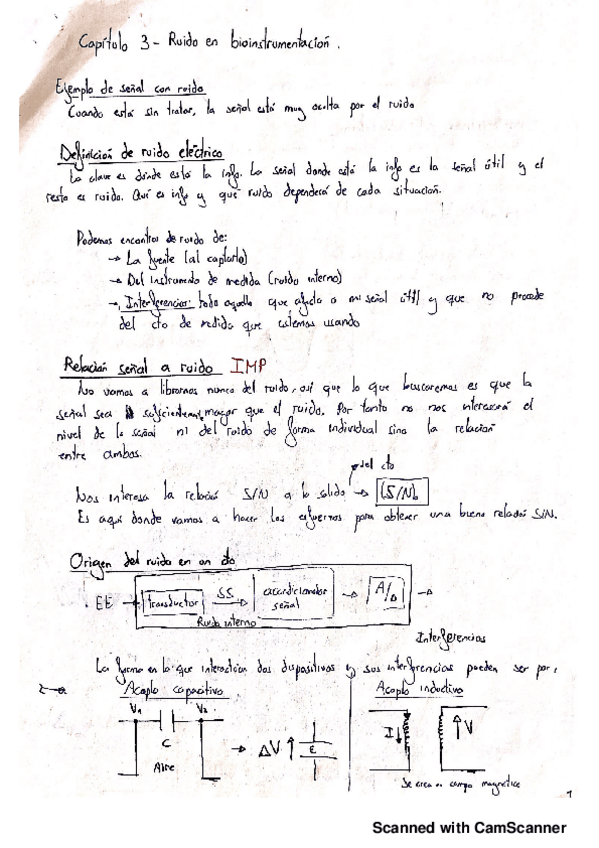 Capítulo 3 - Ruido en bioinstrumentación.
Ejemplo de señal con ruido
Cuando está sin tratar, la señal está muy oculta por el ruido
Definición de ruido eléctrico
La clave es dónde está la info. La señal donde está la info es la señal útil y el
resto es ruido. Qué es info y qué ruido dependerá de cada situación.
Podemos encontrar de ruido de:
→ La fuente (al captarlo)
→ Del instrumento de medida (ruido interno)
→ Interferencias: todo aquello que afecta a mi señal útil y que no procede
del cto de medida que estemos usando
Relación señal a ruido IMP
No vamos a librarnos nunca del ruido, así que lo que buscaremos es que la
señal sea suficientemente mayor que el ruido. Por tanto no nos interesará el
nivel de la señal ni del ruido de forma individual sino la relación
entre ambos.
del cto
Nos interesa la relación S/N a la salida → (S/N)o
Es aquí donde vamos a hacer los esfuerzos para obtener una buena relación S/N.
Origen del ruido en un cto
EE → transductor SS → acondicionador señal → A/D →
Ruido interno
Interferencias
La forma en la que interactúan dos dispositivos y sus interferencias pueden ser por:
Acoplo capacitivo Acoplo inductivo
V1 V2
C
Aire
→ ΔV ↑ E
I ↓ ↑ V
Se crea un campo magnético
1
Scanned with CamScanner